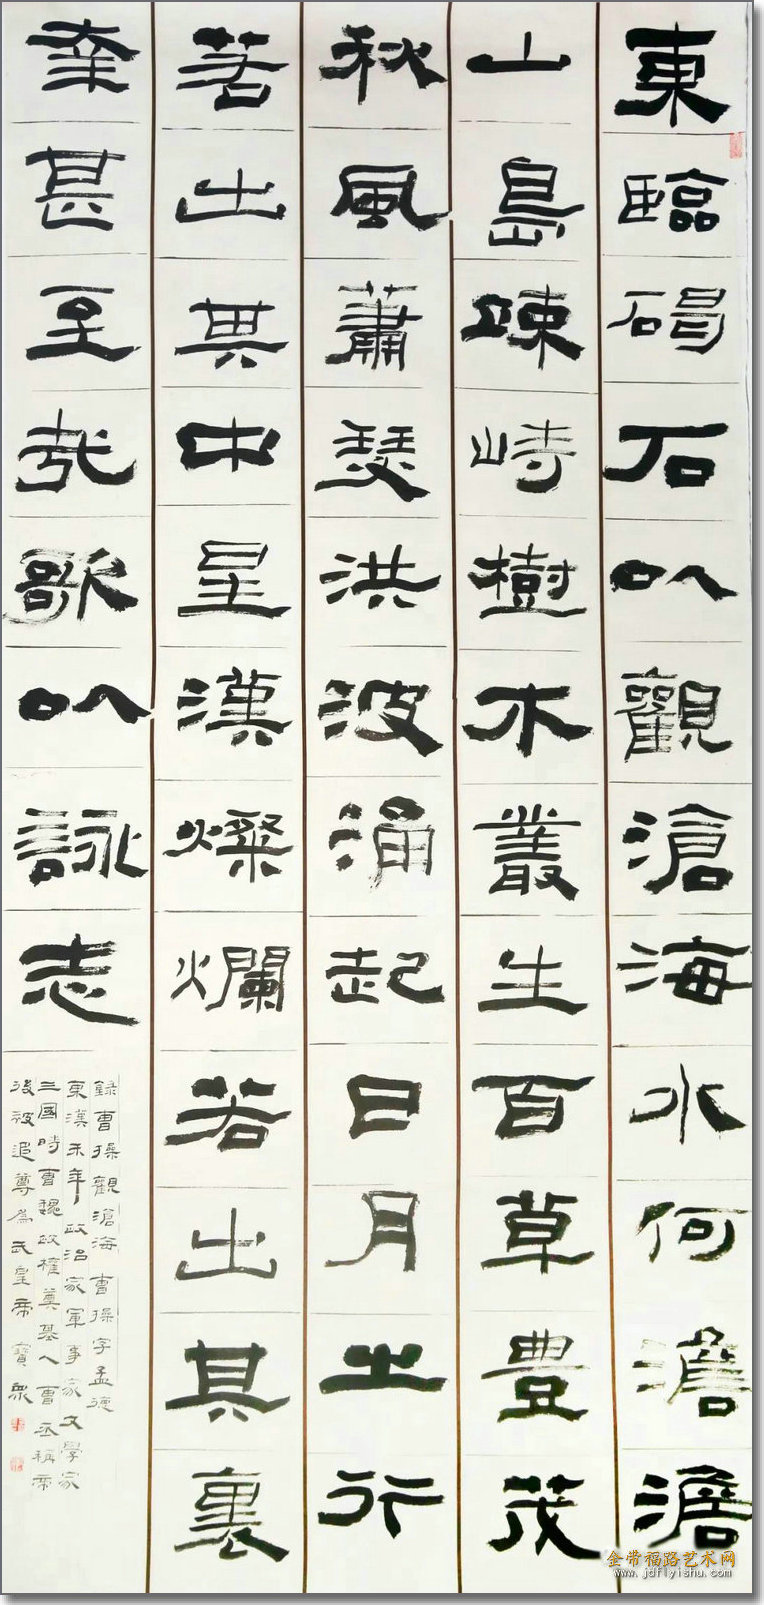 東臨碣石以觀滄海水何澹澹
山島竦峙樹木叢生百草豊茂
秋風蕭瑟洪波涌起日月之行
若出其中星漢燦爛若出其裏
幸甚至哉歌以詠志
錄曹操觀滄海 曹操字孟德
東漢末年政治家軍事家文學家
三國時曹魏政權奠基人曹丕稱帝
後被追尊為武皇帝 寶眾
金带福路艺术网
www.jdflyishu.com